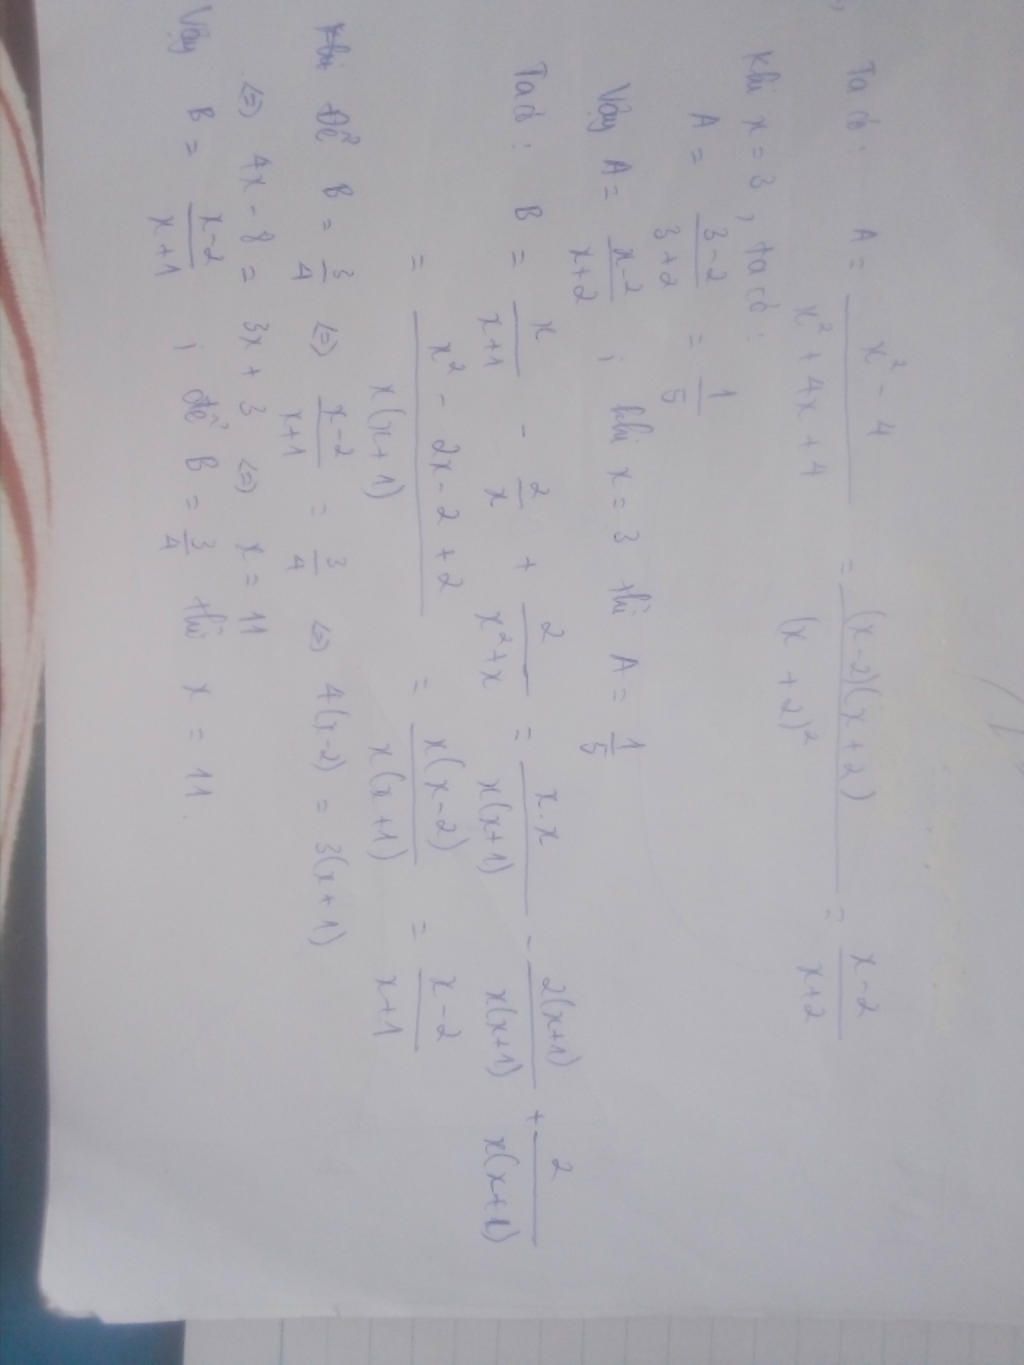 Ta có: A = \frac{x^2 - 4}{x^2 + 4x + 4} = \frac{(x-2)(x+2)}{(x+2)^2} = \frac{x-2}{x+2}
Khi x = 3, ta có:
A = \frac{3-2}{3+2} = \frac{1}{5}
Vậy A = \frac{x-2}{x+2} ; khi x = 3 thì A = \frac{1}{5}
Ta có: B = \frac{x}{x+1} - \frac{2}{x} + \frac{2}{x^2+x} = \frac{x.x}{x(x+1)} - \frac{2(x+1)}{x(x+1)} + \frac{2}{x(x+1)}
= \frac{x^2 - 2x - 2 + 2}{x(x+1)} = \frac{x(x-2)}{x(x+1)} = \frac{x-2}{x+1}
Khi Để B = \frac{3}{4} ⇔ \frac{x-2}{x+1} = \frac{3}{4} ⇔ 4(x-2) = 3(x+1)
⇔ 4x - 8 = 3x + 3 ⇔ x = 11
Vậy B = \frac{x-2}{x+1} ; để B = \frac{3}{4} thì x = 11.